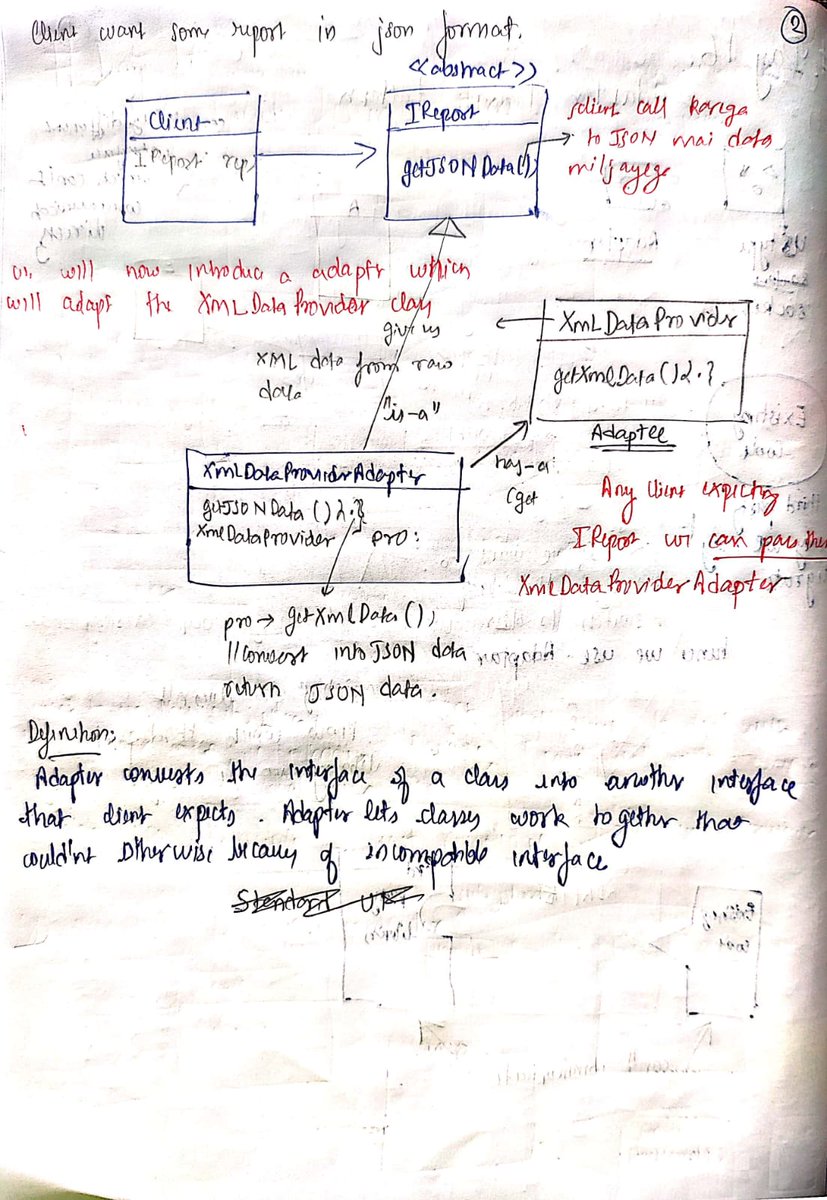 Client want some report in json format.
2
<<abstract>>
Client
IReport rep
IReport
getJSONData();
client call karega
to JSON mai data
miljayege
will now introduc a adaptr which
will adapt the XMLDataProvider clas
give us
XML data from raw
data
XmlDataProvider
getXmlData(){.}
Adaptee
"is-a"
has-a
(get
XmlDataProviderAdapter
getJSONData(){.}
XmlDataProvider pro:
Any client expecting
IReport. we can pass the
XmlDataProviderAdapter
pro→getXmlData();
//Convert into JSON data
return JSON data.
Definition:
Adapter converts the interface of a class into another interface
that client expects. Adapter lets classes work together that
could'nt otherwise because of incompatible interface
Standard U